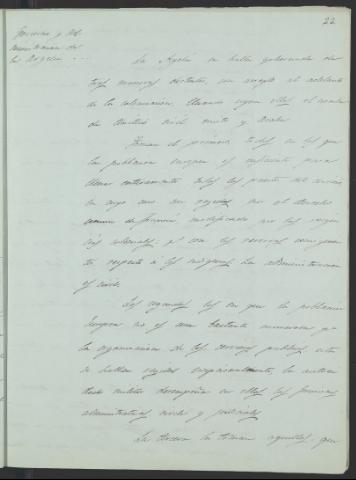 22
Gobierno y Ad
ministracion de
la Argelia
La Argelia se halla gobernada de
tres maneras distintas, con arreglo al adelanto
de la colonizacion, llevando segun ellas el nombre
de territorios civil, mixto y Arabe
Forman el primero todos en los que
la poblacion europea es suficiente para
llenar enteramente todos los puestos del servicio
en cuyo caso son regidos por el derecho
comun de francia, modificado por las
coloniales; y con las reservas consiguien
tes respecto á los indigenas. La administracion
es civil.
Los segundos los en que la poblacion
Europea no es aun bastante numerosa p.a
la organizacion de los servicios publicos
se hallan regidos excepcionalmente, la autori
dad militar desempeña en ellos las funciones
administrativas, civiles y judiciales
La tercera la forman aquellos, que